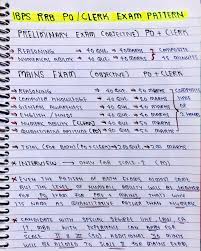 IBPS RRB PO/CLERK EXAM PATTERN
PRELIMINARY EXAM (OBJECTIVE) PO + CLERK
* REASONING → 40 QUE → 40 MARKS COMPOSITE
* NUMERICAL ABILITY → 40 QUE → 40 MARKS 45 MINUTES
MAINS EXAM (OBJECTIVE) PO + CLERK
* REASONING → 40 QUE → 50 MARKS
* COMPUTER KNOWLEDGE → 40 QUE → 20 MARKS COMPOSITE
* GENERAL AWARENESS → 40 QUE → 40 MARKS
* ENGLISH / HINDI → 40 QUE → 40 MARKS 2 HOURS
* NUMERIC ABILITY (CLERK) → 40 QUE → 50 MARKS
* QUANTITATIVE APTITUDE (PO) → 40 QUE → 50 MARKS
* TOTAL (FOR BOTH) → 200 QUE → 200 MARKS
* INTERVIEW → ONLY FOR SCALE-I (PO)
* EVEN THE PATTERN OF BOTH EXAMS ALMOST SAME
BUT THE LEVEL OF NUMERICAL ABILITY
EXAM FOR PO THAT'S WHY
NAMED QUANTITATIVE APTITUDE RATHER THAN NUMERICAL
* CANDIDATE WITH SPECIAL DEGREE LIKE LAW, CA
IT, MBA WITH EXPERIENCE CAN APPLY FOR
SCALE II ADDITIONAL 30 MARKS
WILL BE ALLOWED TO SCALE II FOR MAINS EXAM